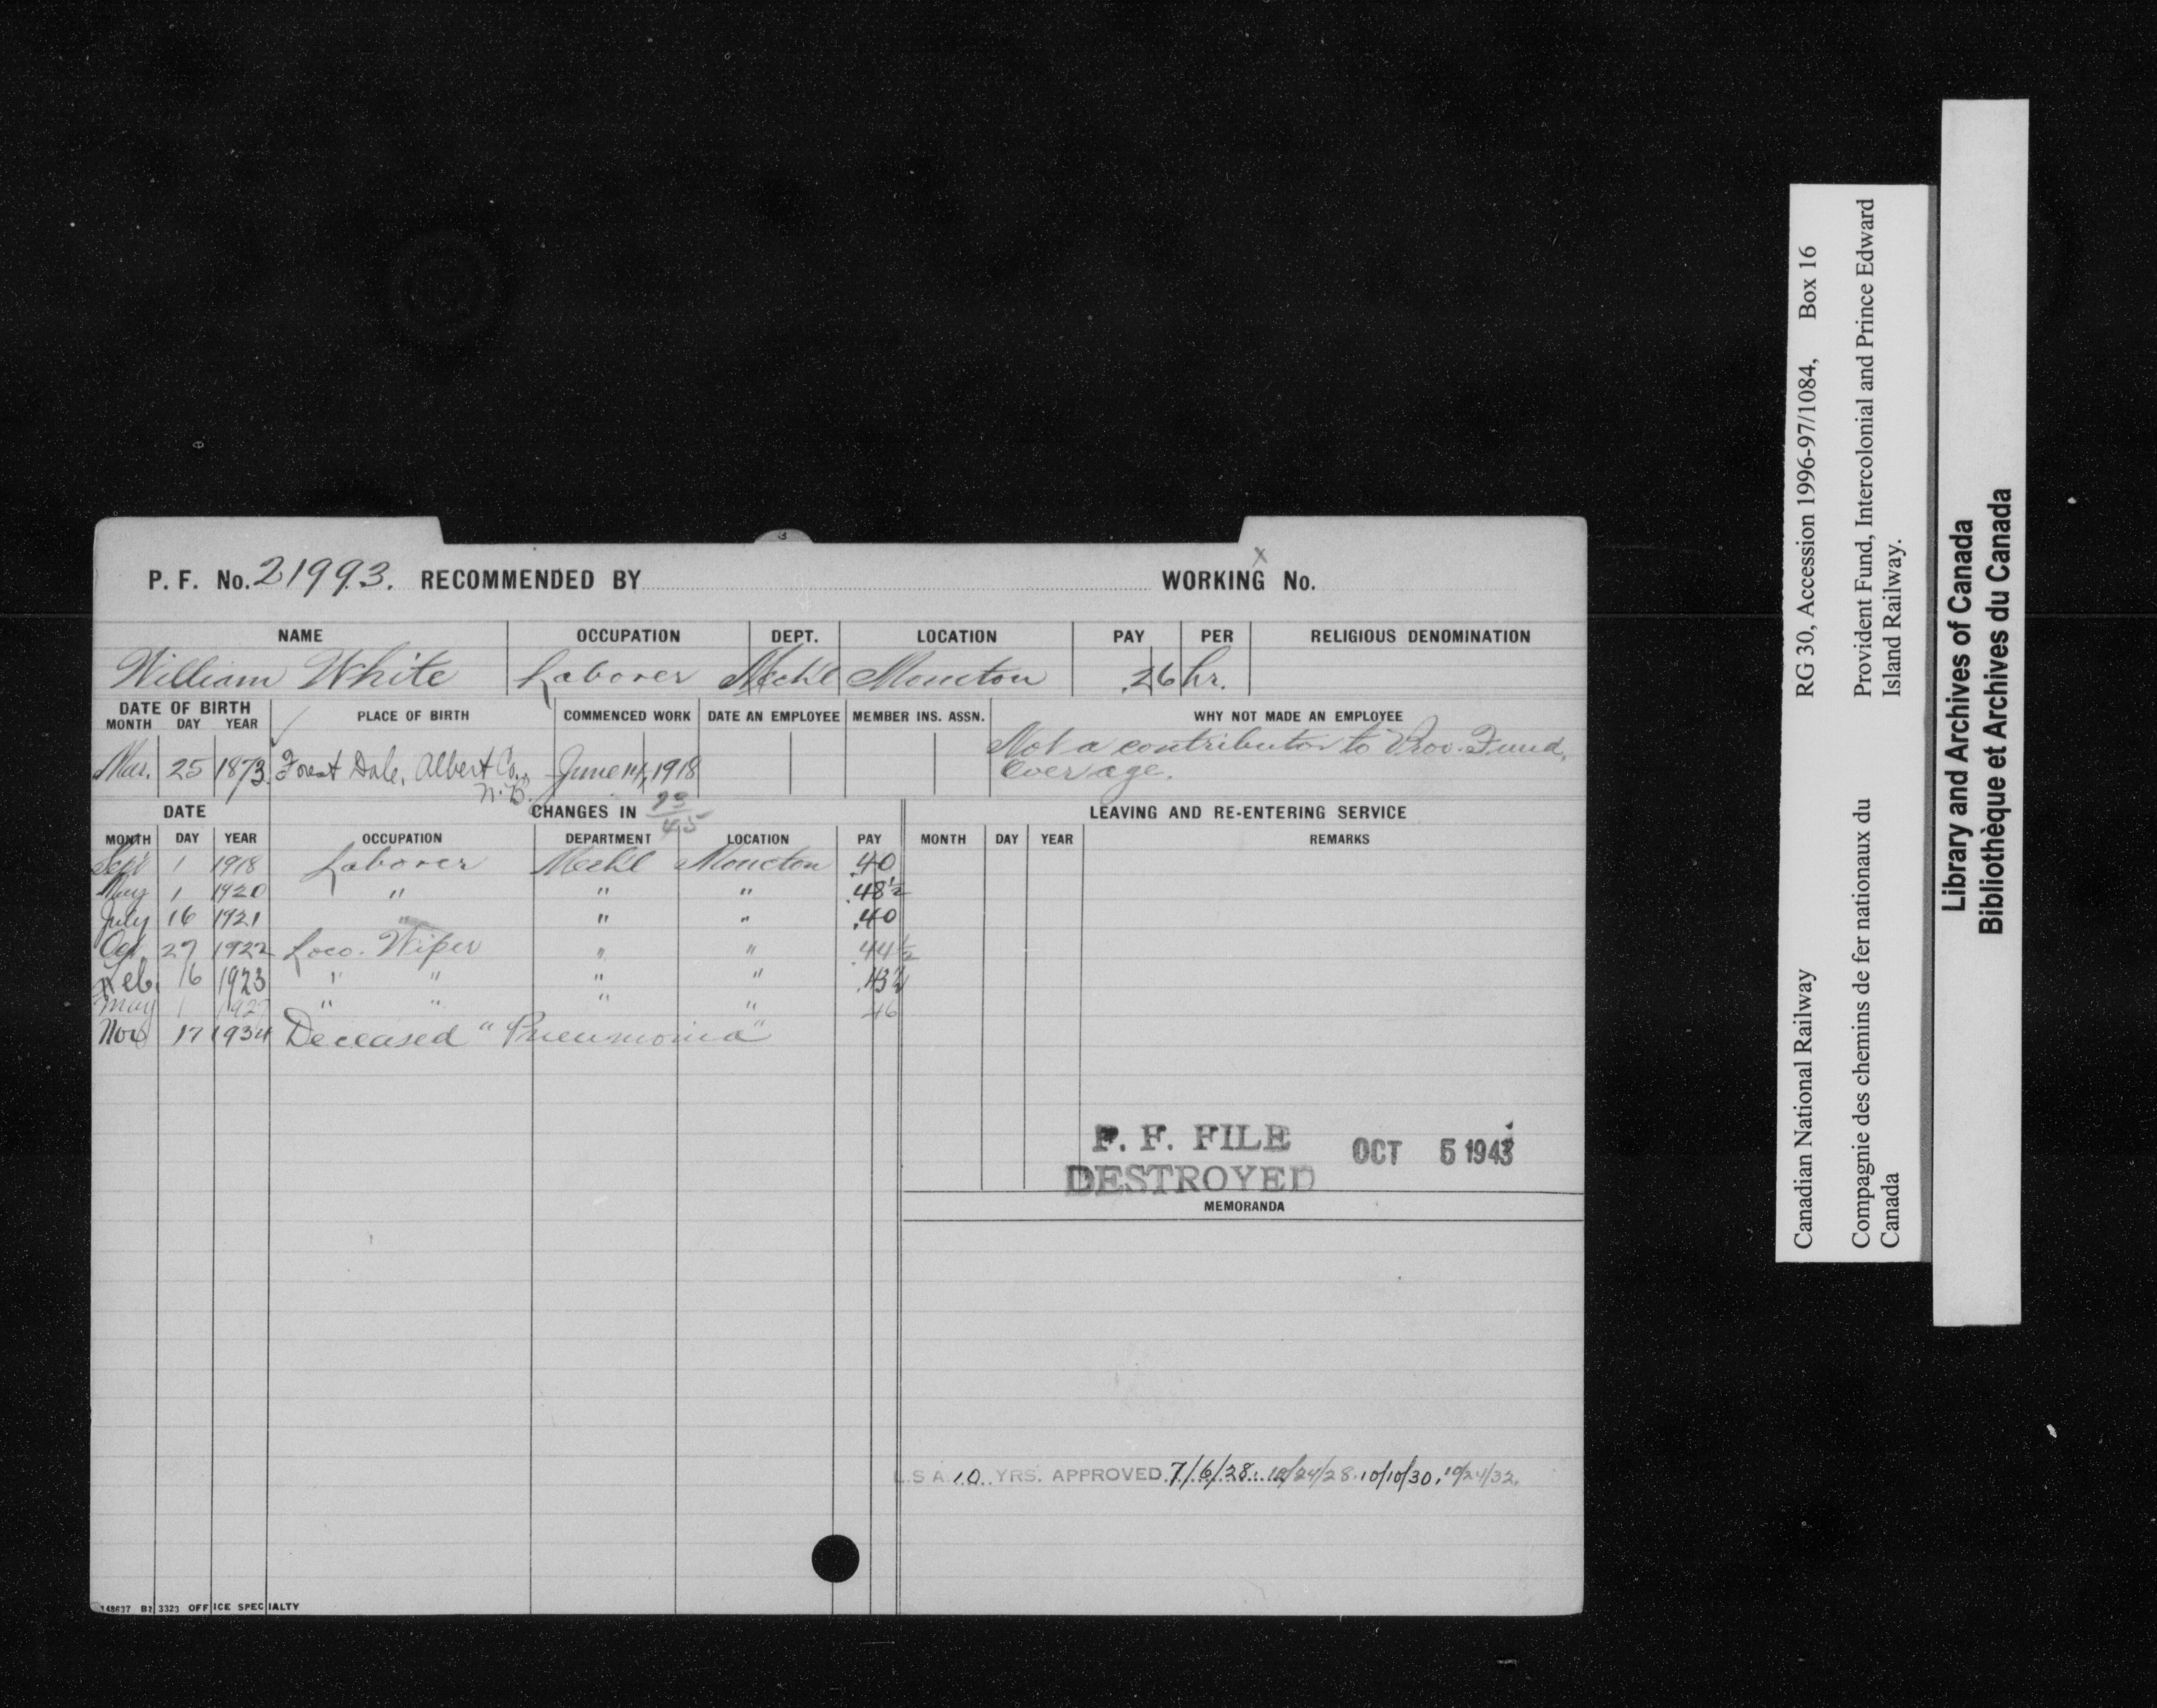 P. F. No. 21993. RECOMMENDED BY WORKING No.
x
NAME OCCUPATION DEPT. LOCATION PAY PER RELIGIOUS DENOMINATION
William White Laborer Mechl Moncton .26 hr.
DATE OF BIRTH PLACE OF BIRTH COMMENCED WORK DATE AN EMPLOYEE MEMBER INS. ASSN. WHY NOT MADE AN EMPLOYEE
MONTH DAY YEAR
Mar. 25 1873. Forest Dale, Albert Co., June 14, 1918 Not a contributor to Prov. Fund,
N.B. Over age.
DATE CHANGES IN 45 LEAVING AND RE-ENTERING SERVICE
MONTH DAY YEAR OCCUPATION DEPARTMENT LOCATION PAY MONTH DAY YEAR REMARKS
Sept 1 1918 Laborer Mechl Moncton .40
May 1 1920 " " " .48½
July 16 1921 " " " .40
Oct. 27 1922 Loco. Wiper " " .44½
Feb. 16 1923 " " " " .43½
May 1 " " " " 46
Nov 17 1934 Deceased "Pneumonia"
P. F. FILE OCT 5 1943
DESTROYED
MEMORANDA
L.S A 10 YRS. APPROVED 7/6/28. 10/24/28. 10/10/30. 10/24/32.
148637 B1 3323 OFFICE SPECIALTY
Canadian National Railway RG 30, Accession 1996-97/1084, Box 16
Compagnie des chemins de fer nationaux du Provident Fund, Intercolonial and Prince Edward
Canada Island Railway.
Library and Archives of Canada
Bibliothèque et Archives du Canada